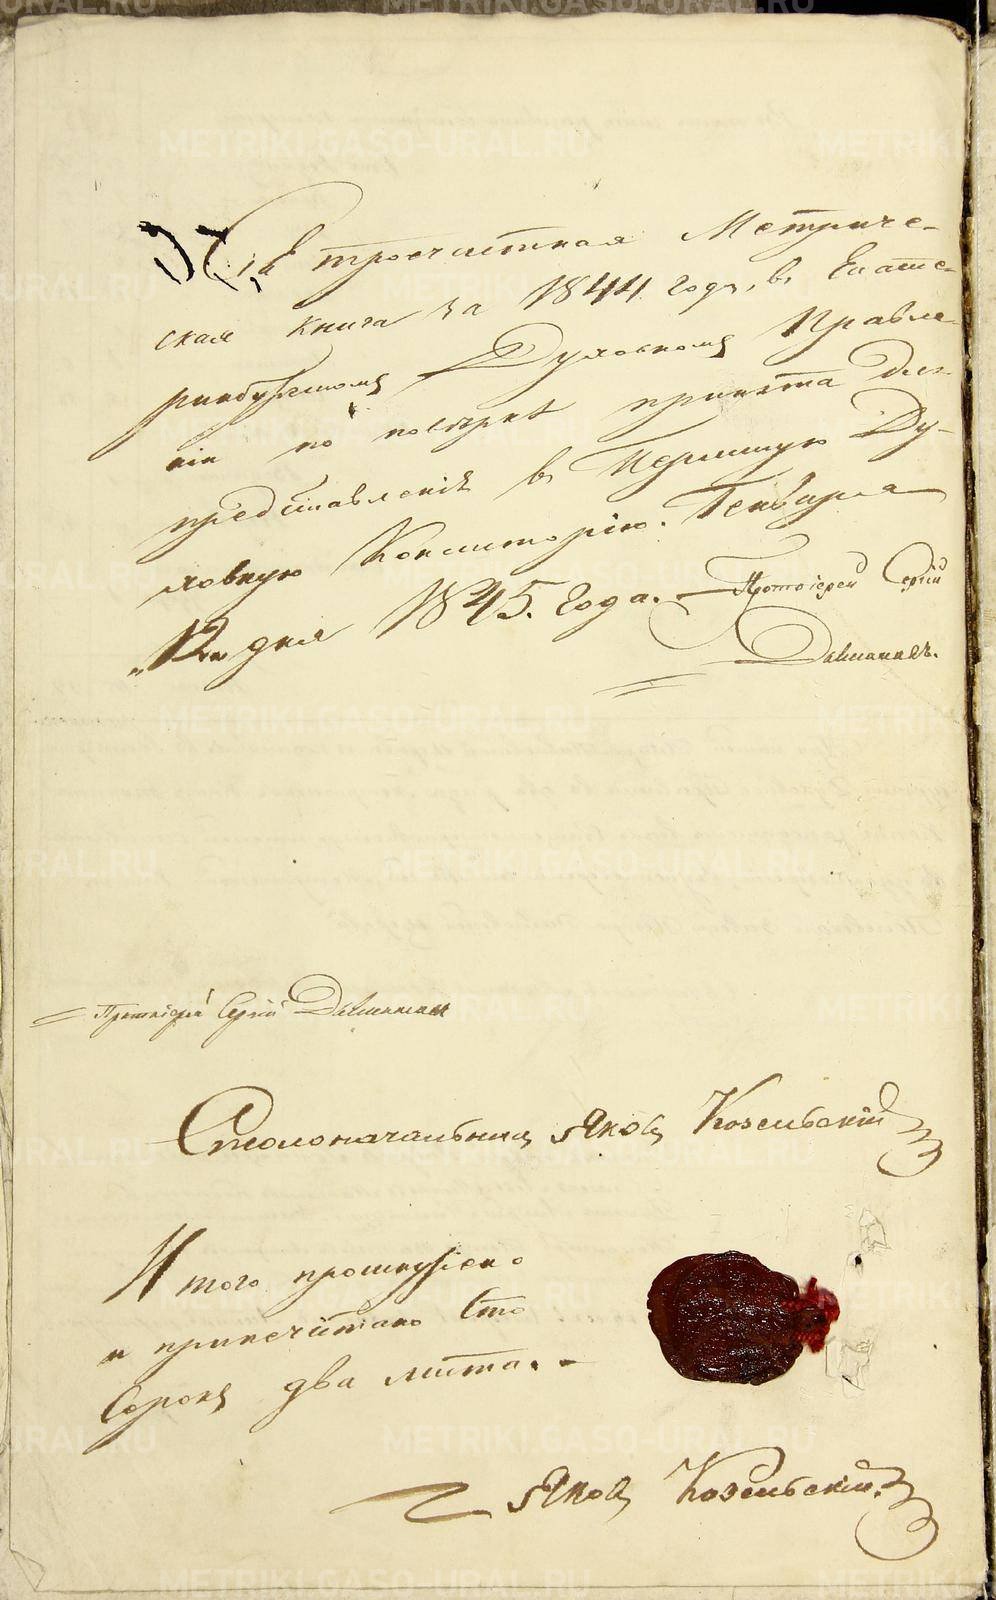 Сія троечастная Метриче-
ская книга за 1844 годъ, въ Екате-
ринбургскомъ Духовномъ Правле-
ніи по повѣркѣ принята для
представленія въ Пермскую Ду-
ховную Консисторію. Генваря
12 дня 1845. Года. Протоіерей Сергій
Протоіерей Сергій
Столоначальникъ Яковъ Козельскій
Итого прошнуровано
и припечатано Сто
Сорокъ два листа.
Яковъ Козельскій.
METRIKI.GASO-URAL.RU